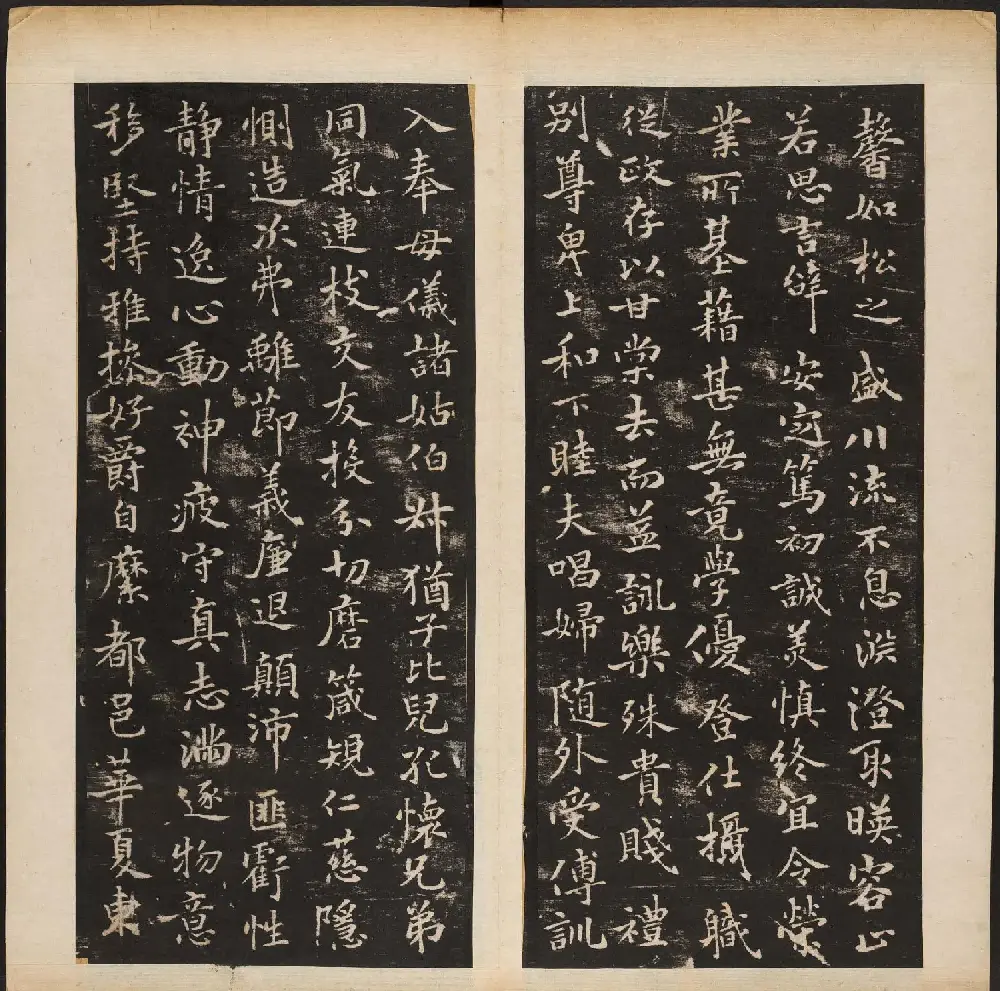 馨如松之盛川流不息淵澄取暎容止
若思言辝安定篤初誠美慎終宜令榮
業所基藉甚無竟學優登仕攝職
從政存以甘棠去而益詠樂殊貴賤禮
別尊卑上和下睦夫唱婦随外受傅訓
入奉母儀諸姑伯叔猶子比兒孔懷兄弟
同氣連枝交友投分切磨箴規仁慈隱
惻造次弗離節義廉退顛沛匪虧性
静情逸心動神疲守真志滿逐物意
移堅持雅操好爵自縻都邑華夏東